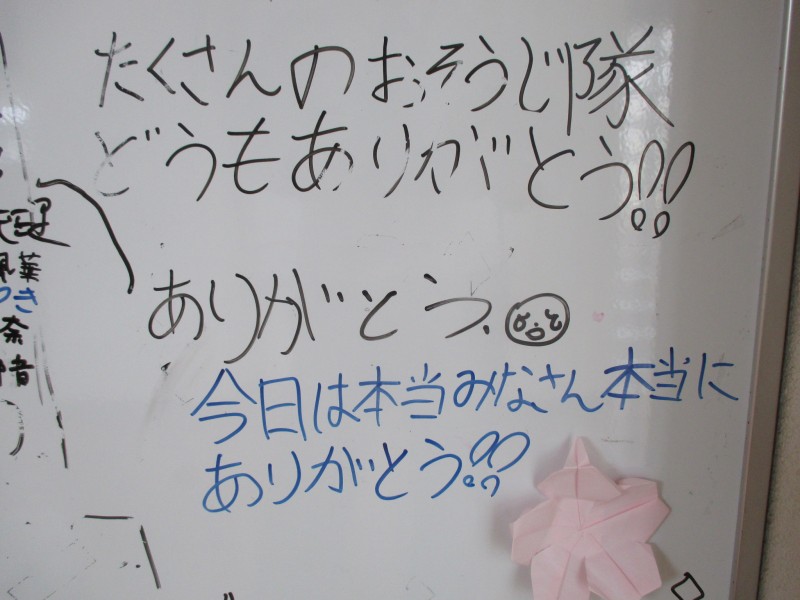 たくさんのおそうじ隊
どうもありがとう!!
ありがとう.
今日は本当みなさん本当に
ありがとう!!
華
つき
奈
音